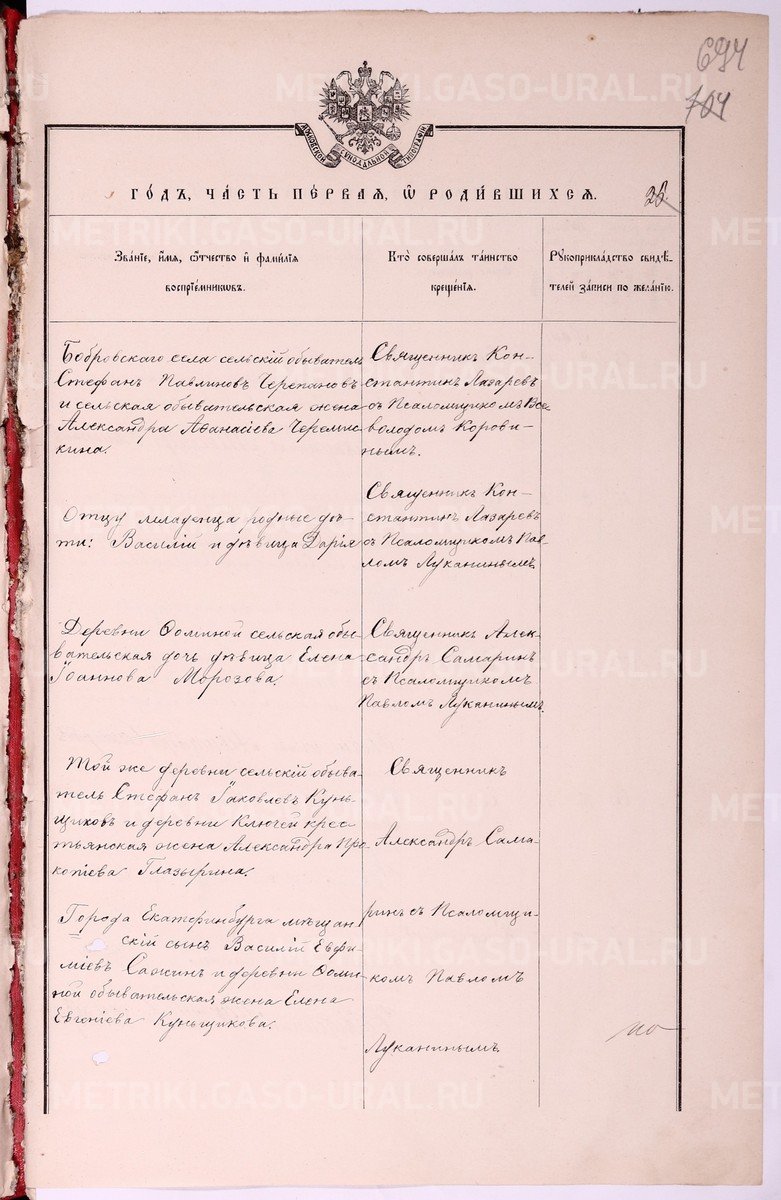 694
704
МОСКОВСКОЙ СѴНОДАЛЬНОЙ ТИПОГРАФІИ
ГО́ДЪ, ЧА́СТЬ ПЕ́РВАЯ, Ѽ РОДИ́ВШИХСЯ.
23.
Зва́нїе, и́мя, ѻ҆́тчество и҆ фами́лїя
воспрїе́мникωвъ.
Кто̀ соверша́лъ та́инство
креще́нїя.
Рꙋкоприкла́дство свидѣ́-
телей за́писи по жела́нїю.
Бобровскаго села сельскій обыватель
Стефанъ Павлиновъ Черепановъ
и сельская обывательская жена
Александра Аѳанасіева Черемис-
кина.
Священникъ Кон-
стантинъ Лазаревъ
съ Псаломщикомъ Все-
володомъ Корови-
нымъ.
Отцу младенца родные дѣ-
ти: Василій и дѣвица Дарія
Священникъ Кон-
стантинъ Лазаревъ
съ Псаломщикомъ Пав-
ломъ Луканинымъ
Деревни Ѳоминой сельская обы-
вательская дочь дѣвица Елена
Іоаннова Морозова.
Священникъ Алек-
сандръ Самаринъ
съ Псаломщикомъ
Павломъ Луканинымъ.
Той же деревни сельскій обыва-
тель Стефанъ Іаковлевъ Кунь-
щиковъ и деревни Ключей крес-
тьянская жена Александра Про-
копіева Глазырина.
Города Екатеринбурга мѣщан-
скій сынъ Василій Евфи-
міевъ Сажинъ и деревни Ѳоми-
ной обывательская жена Елена
Евгеніева Куньщикова.
Священникъ
Александръ Сама-
ринъ съ Псаломщи-
комъ Павломъ
Луканинымъ.
METRIKI.GASO-URAL.RU